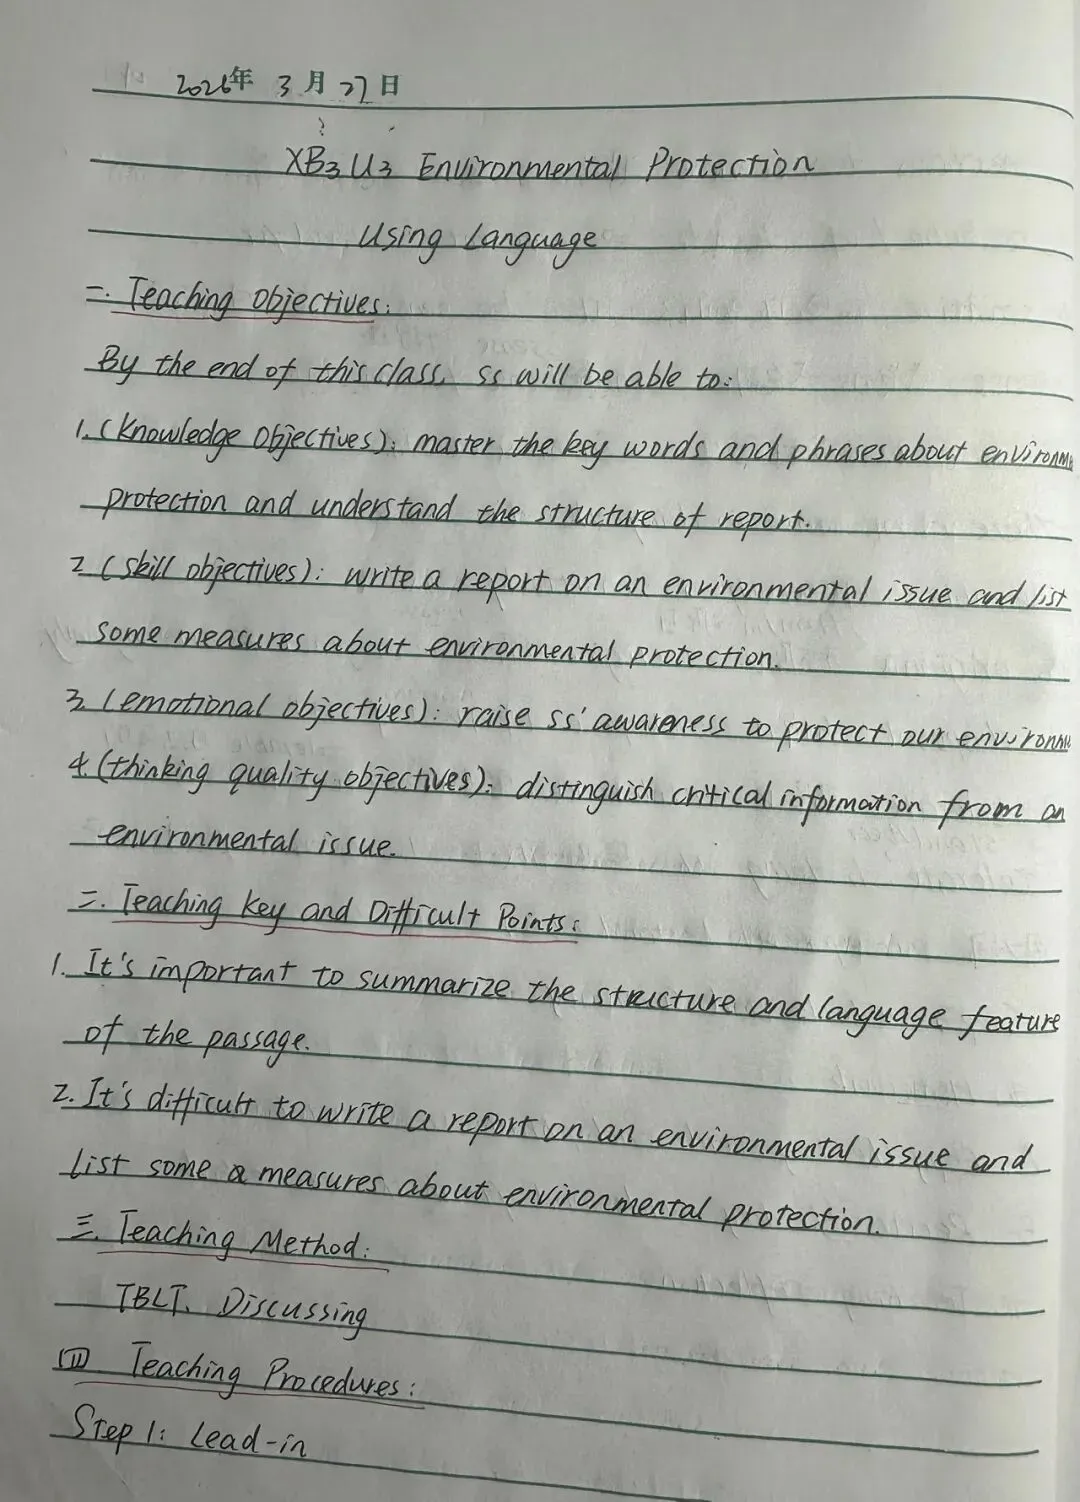 2026年 3月27日
XB3 U3 Environmental Protection
Using Language
一. Teaching Objectives:
By the end of this class, ss will be able to:
1. (Knowledge Objectives): master the key words and phrases about environm
protection and understand the structure of report.
2 (skill objectives): write a report on an environmental issue and list
some measures about environmental protection.
3 (emotional objectives): raise ss' awareness to protect our environm
4 (thinking quality objectives): distinguish critical information from an
environmental issue.
二. Teaching Key and Difficult Points:
1. It's important to summarize the structure and language feature
of the passage.
2. It's difficult to write a report on an environmental issue and
list some measures about environmental protection.
三. Teaching Method:
TBLT、Discussing
四 Teaching Procedures:
Step 1: Lead-in